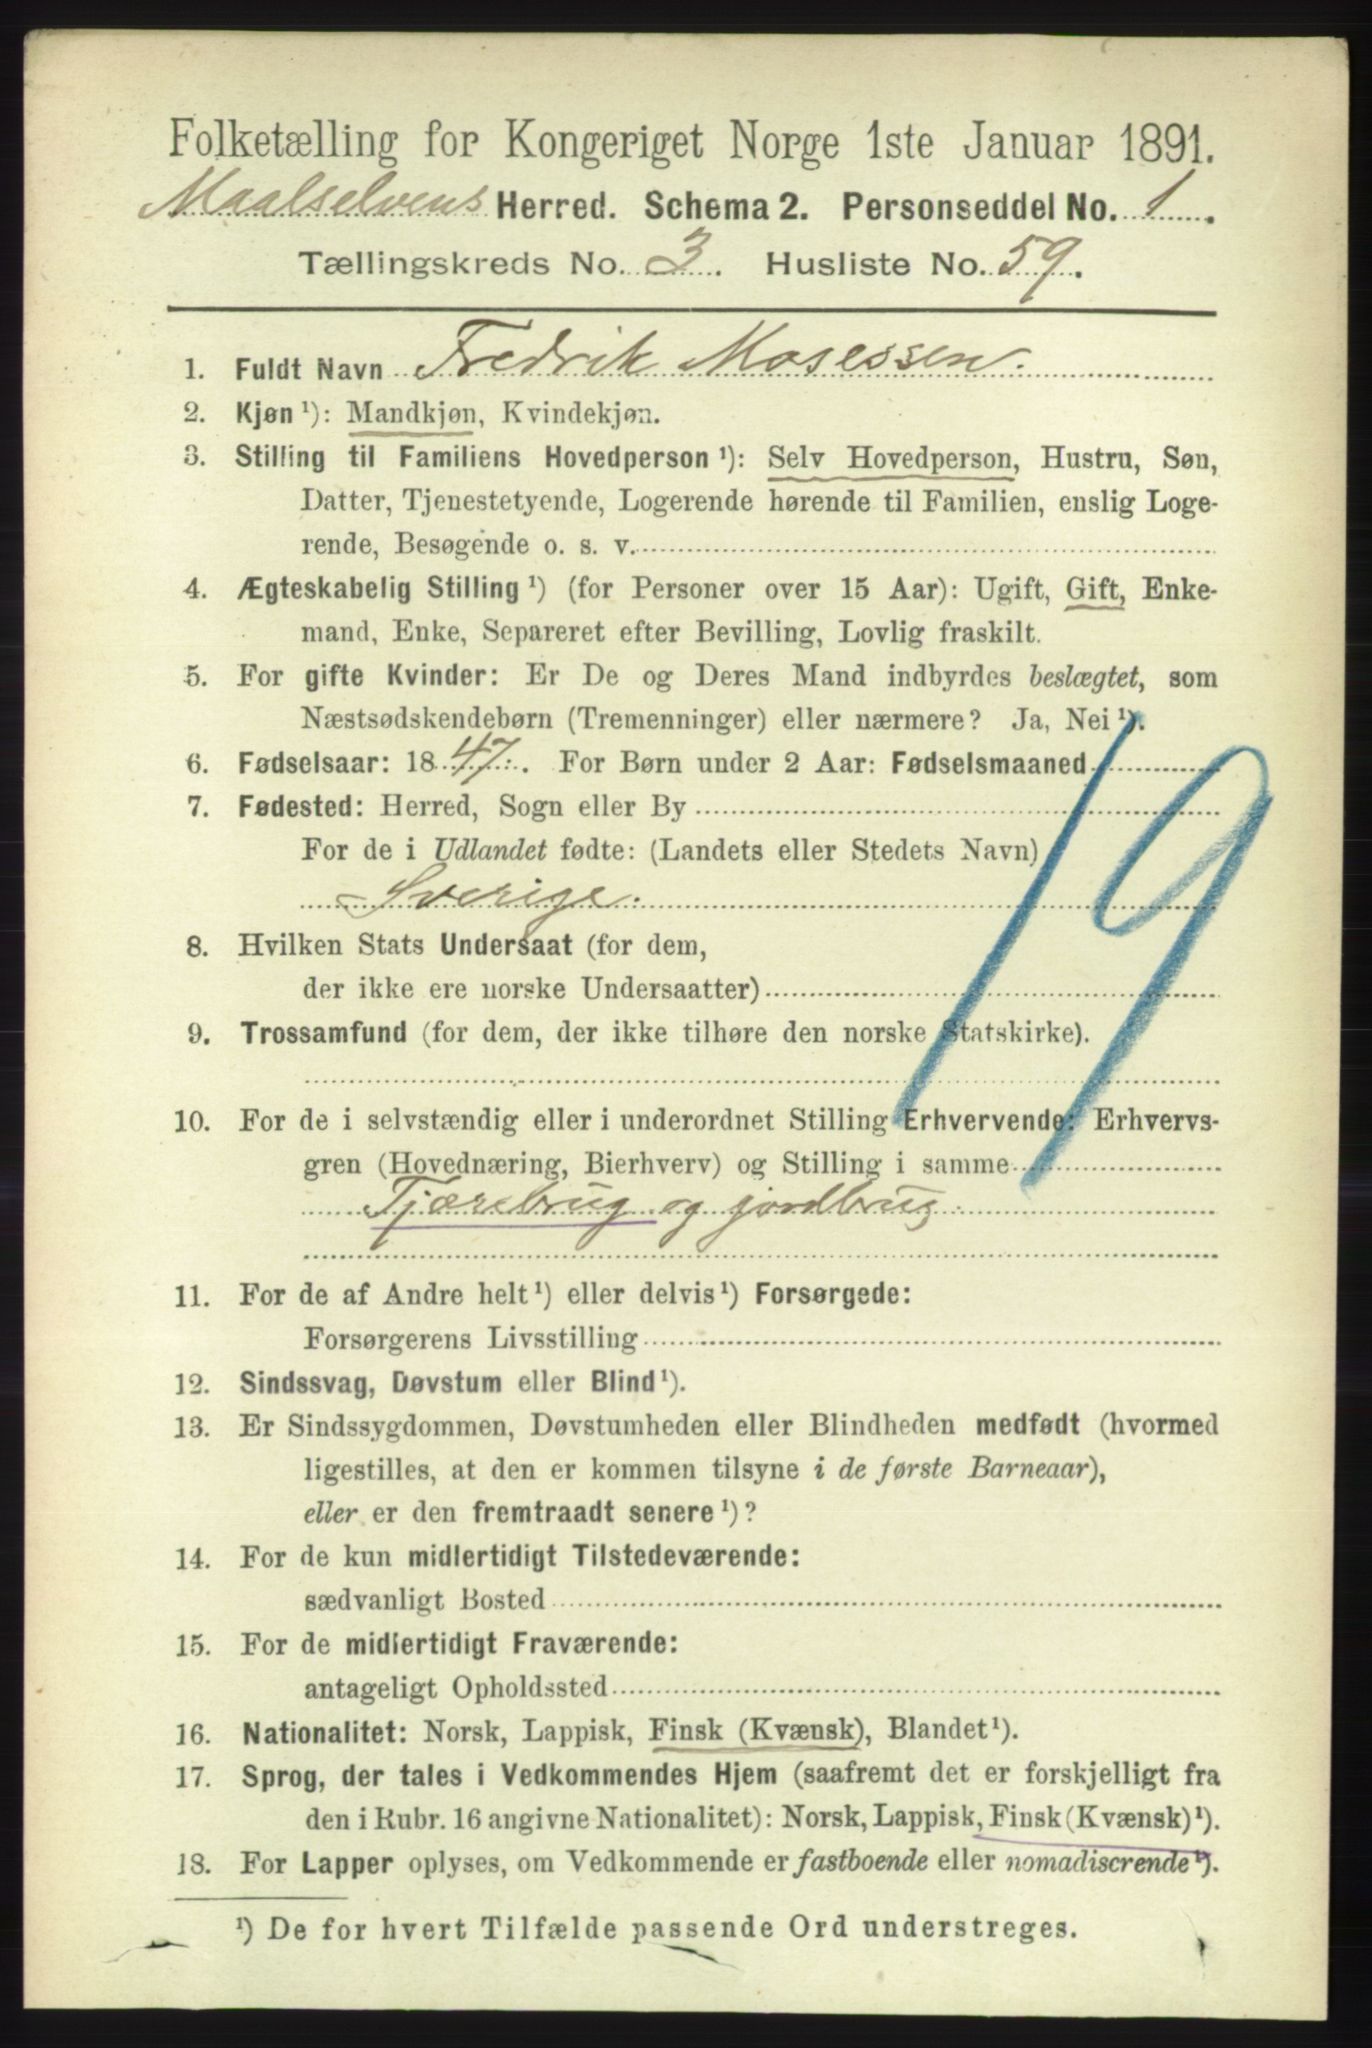 Folketælling for Kongeriget Norge 1ste Januar 1891.
Maalselvens Herred. Schema 2. Personseddel No. 1.
Tællingskreds No. 3. Husliste No. 59.
1. Fuldt Navn Fredrik Mosessen.
2. Kjøn¹): Mandkjøn, Kvindekjøn.
3. Stilling til Familiens Hovedperson¹): Selv Hovedperson, Hustru, Søn,
Datter, Tjenestetyende, Logerende hørende til Familien, enslig Loge-
rende, Besøgende o. s. v.
4. Ægteskabelig Stilling¹) (for Personer over 15 Aar): Ugift, Gift, Enke-
mand, Enke, Separeret efter Bevilling, Lovlig fraskilt.
5. For gifte Kvinder: Er De og Deres Mand indbyrdes beslægtet, som
Næstsødskendebørn (Tremenninger) eller nærmere? Ja, Nei¹).
6. Fødselsaar: 1847. For Børn under 2 Aar: Fødselsmaaned
7. Fødested: Herred, Sogn eller By
For de i Udlandet fødte: (Landets eller Stedets Navn)
Sverige.
19
8. Hvilken Stats Undersaat (for dem,
der ikke ere norske Undersaatter)
9. Trossamfund (for dem, der ikke tilhøre den norske Statskirke).
10. For de i selvstændig eller i underordnet Stilling Erhvervende: Erhvervs-
gren (Hovednæring, Bierhverv) og Stilling i samme
Tjærebrug og jordbrug.
11. For de af Andre helt¹) eller delvis¹) Forsørgede:
Forsørgerens Livsstilling
12. Sindssvag, Døvstum eller Blind¹).
13. Er Sindssygdommen, Døvstumheden eller Blindheden medfødt (hvormed
ligestilles, at den er kommen tilsyne i de første Barneaar),
eller er den fremtraadt senere¹)?
14. For de kun midlertidigt Tilstedeværende:
sædvanligt Bosted
15. For de midlertidigt Fraværende:
antageligt Opholdssted
16. Nationalitet: Norsk, Lappisk, Finsk (Kvænsk), Blandet¹).
17. Sprog, der tales i Vedkommendes Hjem (saafremt det er forskjelligt fra
den i Rubr. 16 angivne Nationalitet): Norsk, Lappisk, Finsk (Kvænsk)¹).
18. For Lapper oplyses, om Vedkommende er fastboende eller nomadiscrende¹).
¹) De for hvert Tilfælde passende Ord understreges.